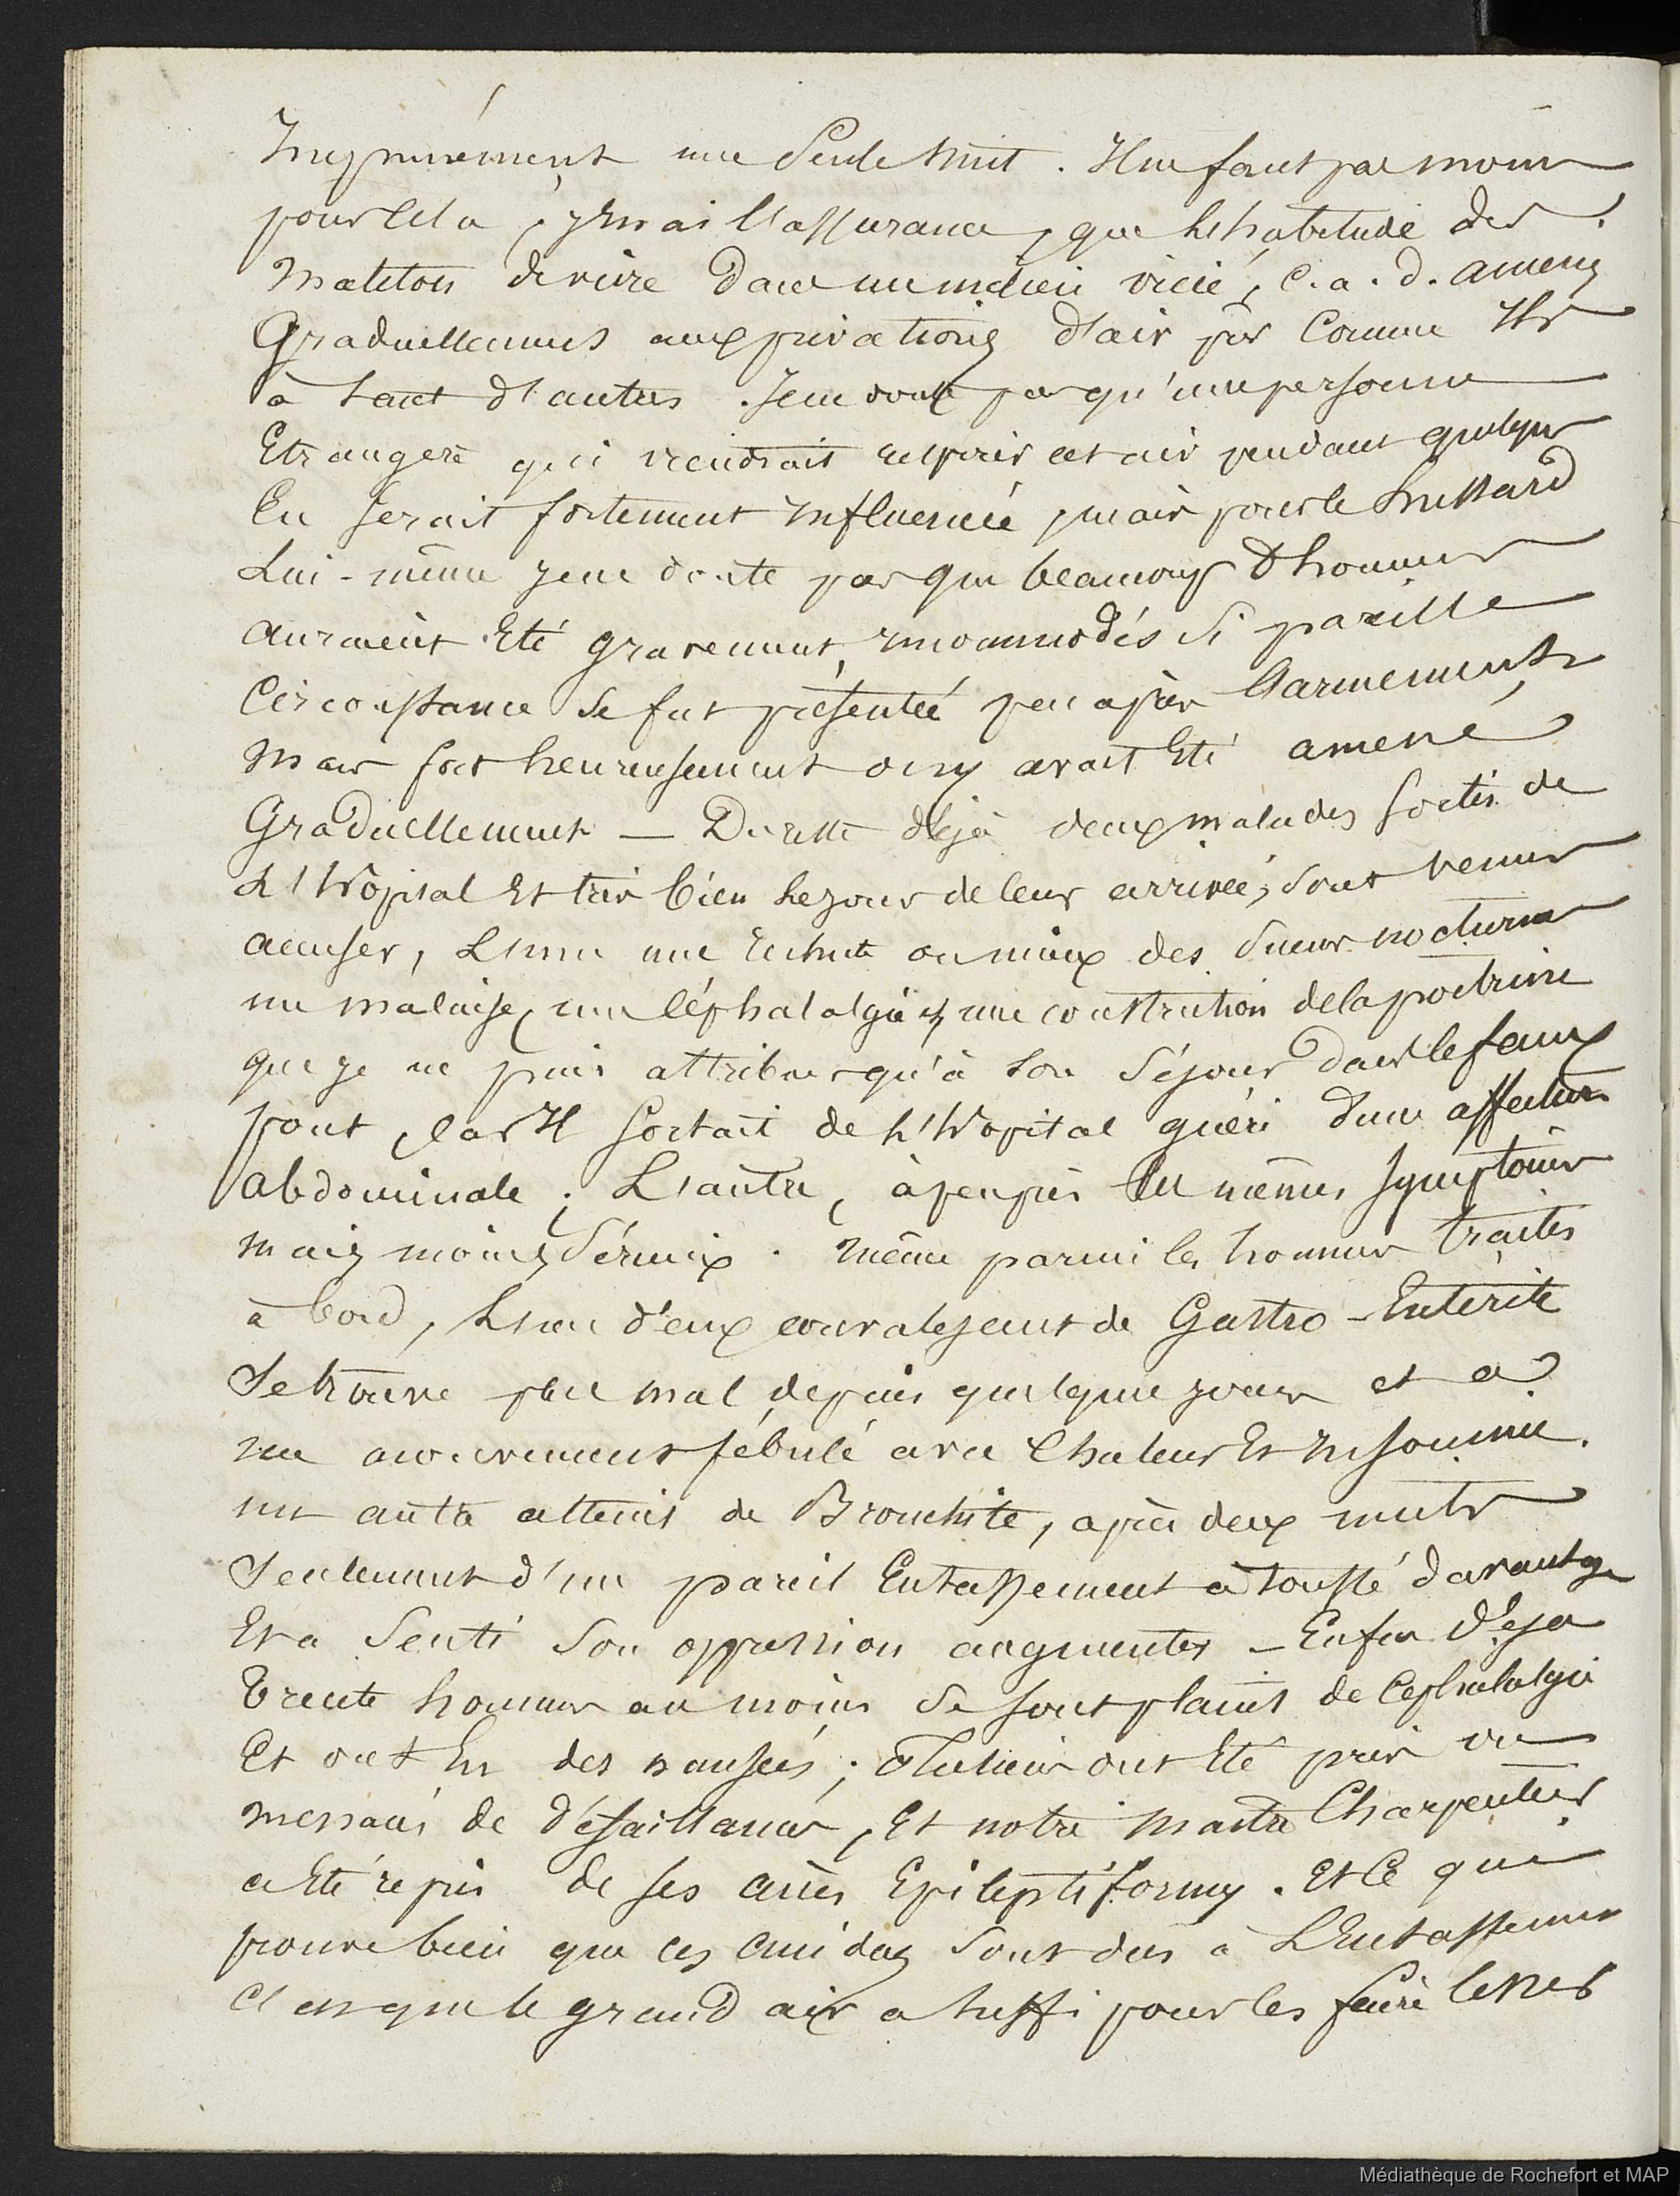 Impunément une Seule Nuit. Il ne faut pas moins
pour cela, j'en ai l'assurance, que l'habitude des
Matelots de vivre dans un milieu vicié, c.a.d. amenés
Graduellement aux privations d'air pur Comme Ils
à tant d'autres. Je ne doute pas qu'une personne
Etrangère qui viendrait respirer cet air pendant quelques
En serait fortement Influencée, mais pour le
Lui-même je ne doute pas que beaucoup d'hommes
auraient Eté gravement, incommodés Si pareille
Circonstance Se fut présentée peu après l'armement,
Mais fort heureusement on y avait Eté amené
Graduellement — Du reste déjà deux malades sortis de
L'Hôpital Et très bien le jour de leur arrivée, sont venus
accuser, L'un une rechute ou mieux des Sueurs nocturnes
un malaise, une Céphalalgie et une constriction de la poitrine
que je ne puis attribuer qu'à Son Séjour dans le faux
pont, Car Il Sortait de L'Hopital guéri d'une affection
abdominale; L'autre, à peu près les mêmes Symptômes
mais moins Sérieux. Même parmi les hommes traités
à bord, L'un d'eux convalescent de Gastro-Entérite
Se trouve plus mal depuis quelques jours et a
un mouvement fébrile avec Chaleur Et Insomnie.
un autre atteint de Bronchite, après deux nuits
Seulement d'un pareil Entassement a toussé davantage
Et a Senti Son oppression augmenter — Enfin déja
Trente hommes au moins Se sont plaints de Cephalalgie
Et ont Eu des nausées; Plusieurs ont Eté pris ou
menacés de défaillances, Et notre Maître Charpentier
a Eté repris de ses accès Epileptiformes. Et Ce qui
prouve bien que ces accidents Sont dus à L'Entassement
C'est que le grand air a suffi pour les faire Cesser
Médiathèque de Rochefort et MAP